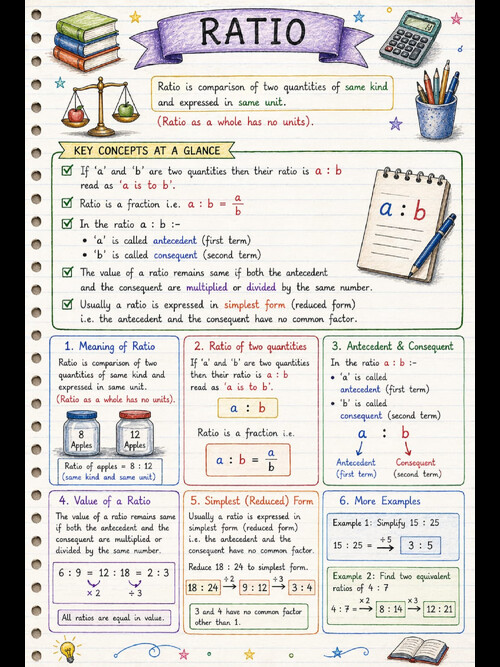 RATIO
Ratio is comparison of two quantities of same kind
and expressed in same unit.
(Ratio as a whole has no units).
KEY CONCEPTS AT A GLANCE
If 'a' and 'b' are two quantities then their ratio is a : b
read as 'a is to b'.
Ratio is a fraction i.e. a : b = a/b
In the ratio a : b :-
• 'a' is called antecedent (first term)
• 'b' is called consequent (second term)
The value of a ratio remains same if both the antecedent
and the consequent are multiplied or divided by the same number.
Usually a ratio is expressed in simplest form (reduced form)
i.e. the antecedent and the consequent have no common factor.
a : b
1. Meaning of Ratio
Ratio is comparison of two
quantities of same kind and
expressed in same unit.
(Ratio as a whole has no units).
8
Apples
12
Apples
Ratio of apples = 8 : 12
(same kind and same unit)
2. Ratio of two quantities
If 'a' and 'b' are two quantities
then their ratio is a : b
read as 'a is to b'.
a : b
Ratio is a fraction i.e.
a : b = a/b
3. Antecedent & Consequent
In the ratio a : b :-
• 'a' is called
antecedent (first term)
• 'b' is called
consequent (second term)
a : b
Antecedent Consequent
(first term) (second term)
4. Value of a Ratio
The value of a ratio remains same
if both the antecedent and the
consequent are multiplied or
divided by the same number.
6 : 9 = 12 : 18 = 2 : 3
× 2 ÷ 3
All ratios are equal in value.
5. Simplest (Reduced) Form
Usually a ratio is expressed in
simplest form (reduced form)
i.e. the antecedent and the
consequent have no common factor.
Reduce 18 : 24 to simplest form.
÷2 ÷3
18 : 24 → 9 : 12 → 3 : 4
3 and 4 have no common factor
other than 1.
6. More Examples
Example 1: Simplify 15 : 25
÷5
15 : 25 = → 3 : 5
Example 2: Find two equivalent
ratios of 4 : 7
×2 ×3
4 : 7 = → 8 : 14 → 12 : 21